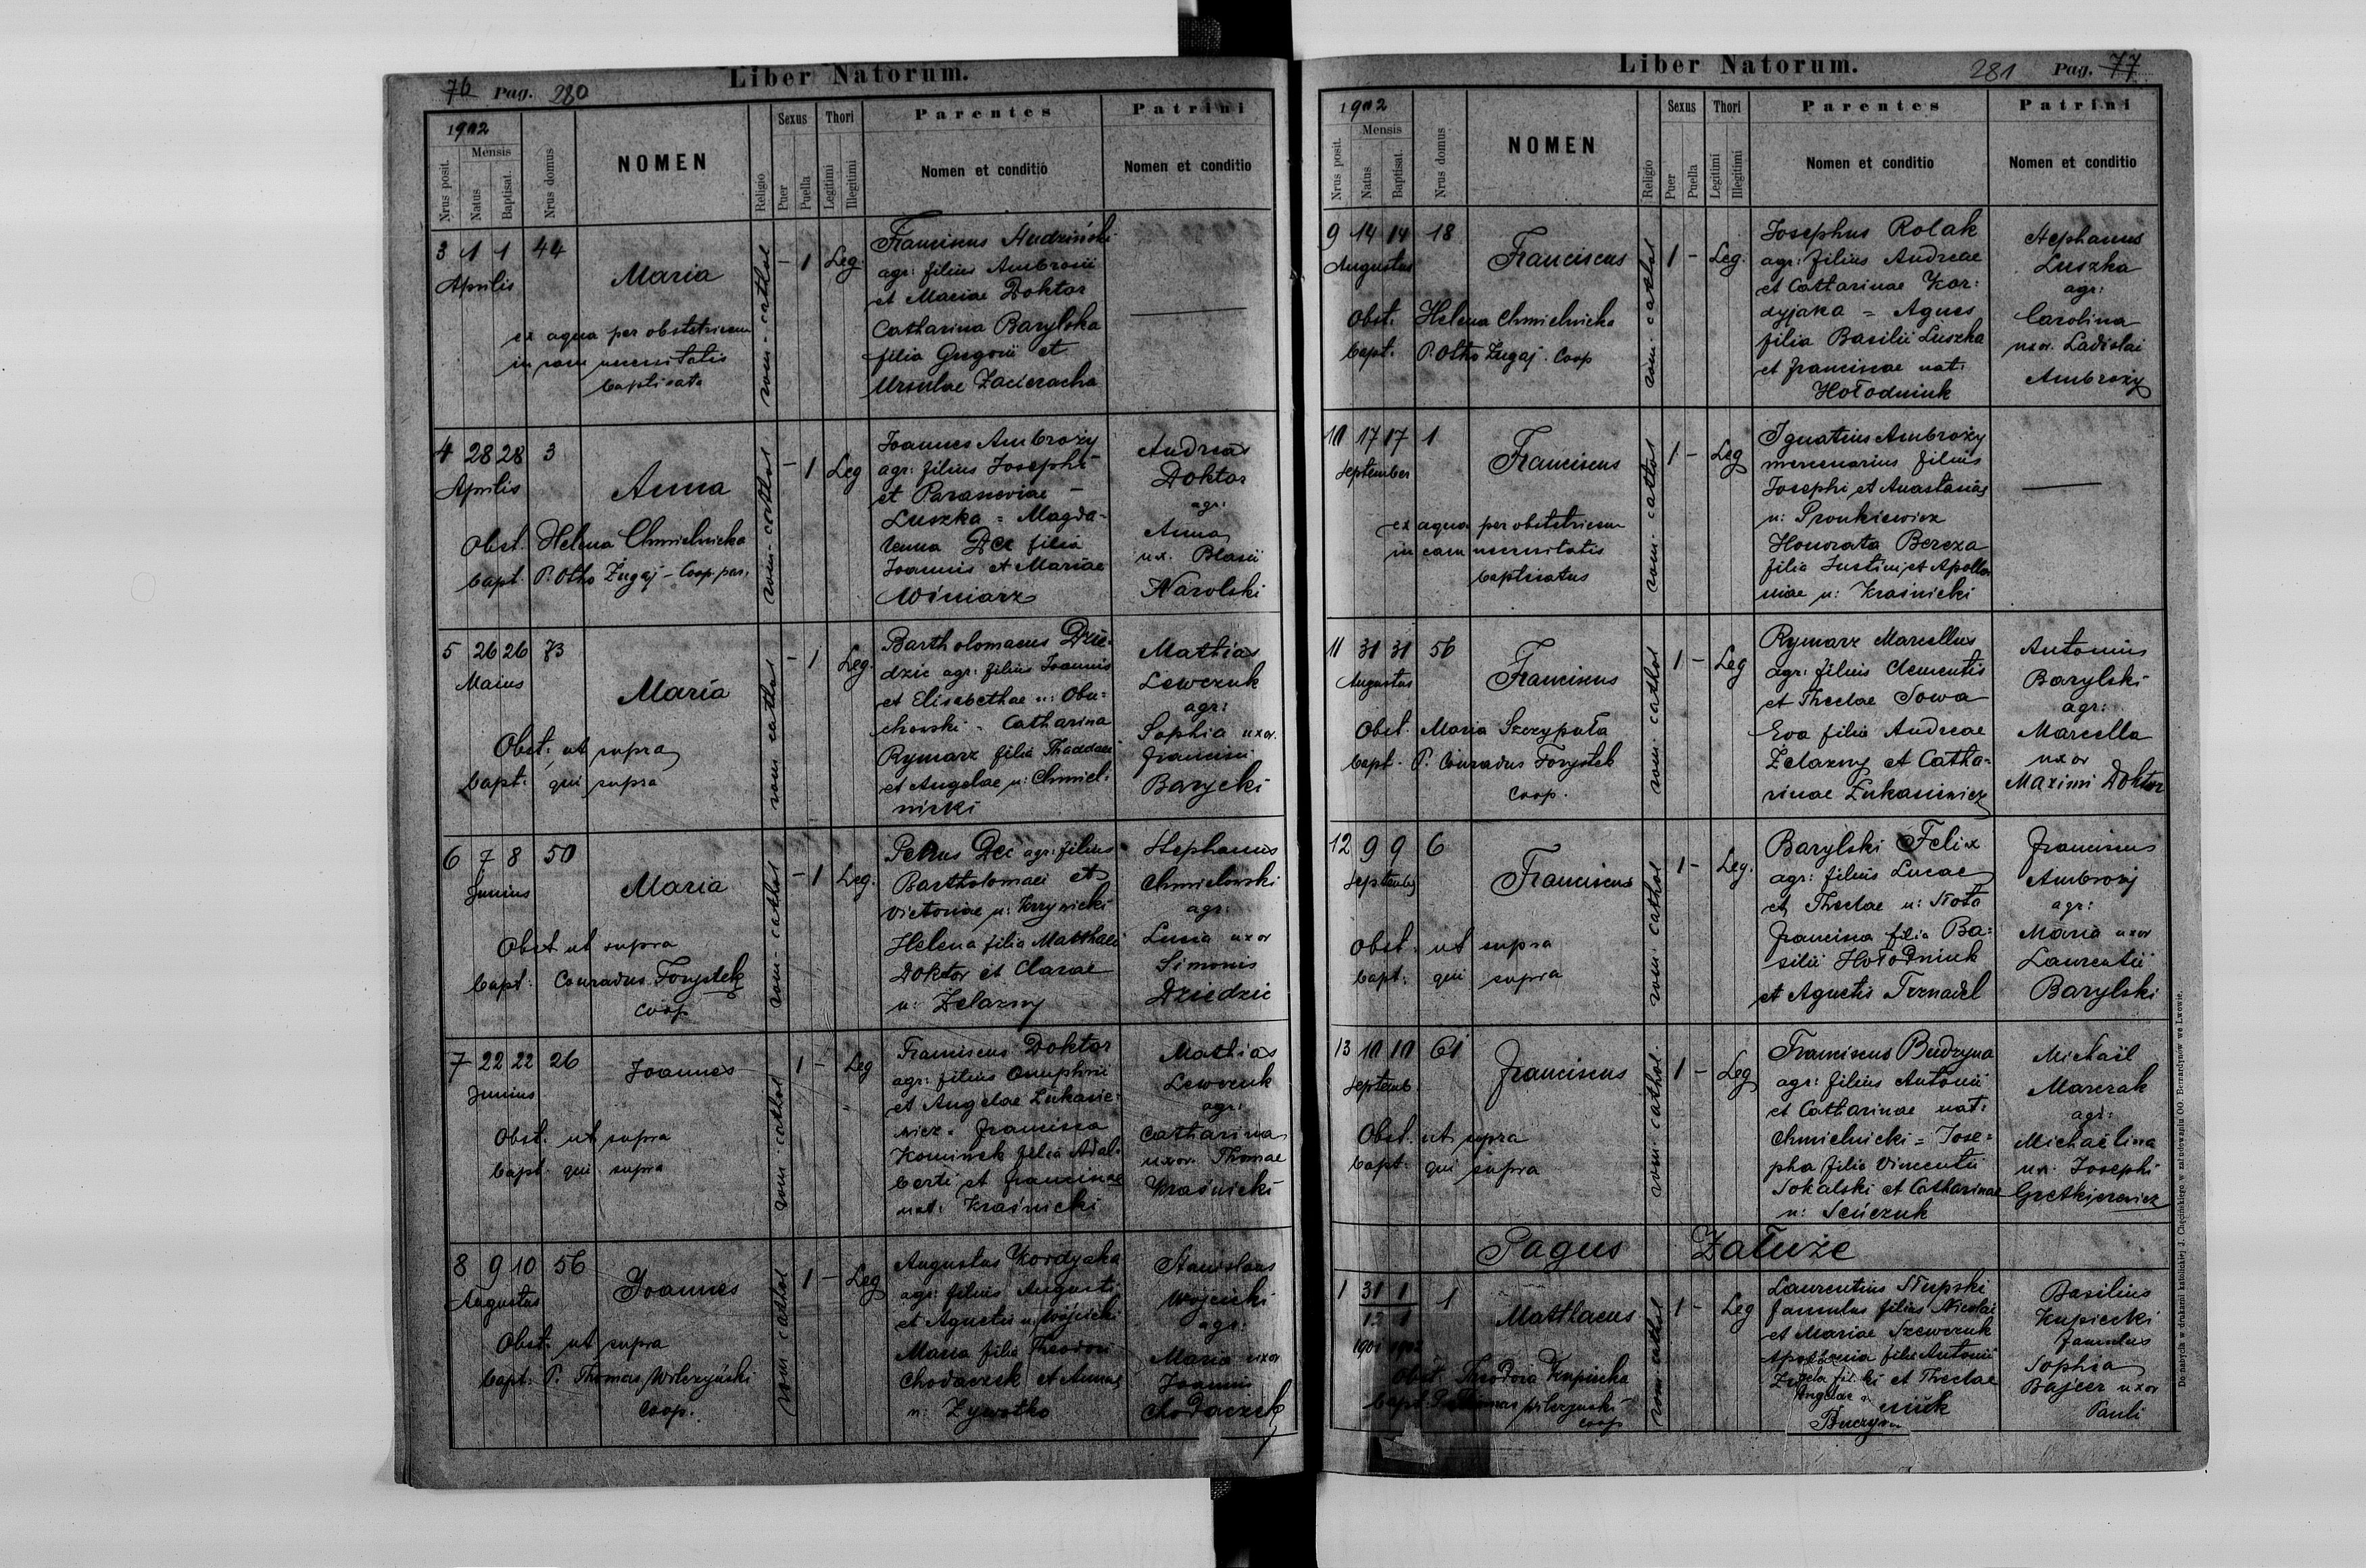 76 Pag. 280
Liber Natorum.
1902
Nrus posit.
Mensis
Natus
Baptisat.
Nrus domus
NOMEN
Religio
Sexus
Puer
Puella
Thori
Legitimi
Illegitimi
Parentes
Nomen et conditio
Patrini
Nomen et conditio
3 1 1 44
Aprilis
Maria
ex aqua per obstetricem
necessitatis
baptisata
rom.-cathol
- 1 Leg.
Franciscus
agr: filius Ambrosii
et Mariae Doktor
Catharina Barylska
filia Gregorii et
Ursulae
4 28 28 3
Aprilis
Anna
Obst. Helena Chmielnicka
bapt. P. Otho Zugaj - Coop. par.
rom.-cathol
- 1 Leg
Joannes Ambroży
agr: filius Josephi
et Parasceviae -
Luszka = Magda-
lenna Dec filia
Joannis et Mariae
Winiarz
Andreas
Doktor
agr:
Anna
ux. Blasii
Narolski
5 26 26 73
Maius
Maria
Obst: ut supra
bapt. qui supra
rom cathol
- 1 Leg.
Bartholomaeus Dzie-
dzic agr: filius Joannis
et Elisabethae n: Obu=
chowski - Catharina
Rymarz filia Thaddaei
et Angelae n: Chmiel-
nicki
Mathias
Lewczuk
agr:
Sophia uxor.
Francisci
Barycki
6 7 8 50
Junius
Maria
Obst ut supra
bapt. Conradus Forystek
coop
rom-cathol
- 1 Leg.
Petrus Dec agr: filius
Bartholomaei et
Victoriae n: Krzywicki
Helena filia Matthaei
Doktor et Clarae
n: Żelazny
Stephanus
Chmielowski
agr:
Lucia uxor
Simonis
Dziedzic
7 22 22 26
Junius
Joannes
Obst. ut supra
bapt. qui supra
rom-cathol
1 - Leg
Franciscus Doktor
agr: filius Onuphrii
et Angelae Łukasie-
wicz. Francisca
Kominek filia Adal-
berti et Franciscae
nat: Kraśnicki
Mathias
Lewczuk
agr:
Catharina
uxor. Thomae
Kraśnicki
8 9 10 56
Augustus
Joannes
Obst. ut supra
bapt. P. Thomas Wilczyński
Coop.
rom cathol
1 - Leg
Augustus Kordyaka
agr: filius Augusti
et Agnetis n: Wójcicki
Maria filia Theodori
Chodaczek et Annae
n: Żywotko
Stanislaus
Wojcicki
agr:
Maria uxor
Joannis
Chodaczek
Liber Natorum.
281 Pag. 77
1902
Nrus posit.
Mensis
Natus
Baptisat.
Nrus domus
NOMEN
Religio
Sexus
Puer
Puella
Thori
Legitimi
Illegitimi
Parentes
Nomen et conditio
Patrini
Nomen et conditio
9 14 14 18
Augustus
Franciscus
Obst. Helena Chmielnicka
bapt. P. Otho Zugaj. Coop
rom. cathol
1 - Leg.
Josephus Rolak
agr: filius Andreae
et Catharinae Kor:
dyjaka = Agnes
filia Basilii Luszka
et Franciscae nat:
Hołodniuk
Stephanus
Luszka
agr:
Carolina
uxor. Ladislai
Ambroży
10 17 17 1
September
Franciscus
ex aqua per obstetricem
necessitatis
baptisatus
rom. cathol
1 - Leg
Ignatius Ambroży
mercenarius filius
Josephi et Anastasiae
n: Pronkiewicz
Honorata Bereza
filia Justini et Apollo
niae n: Kraśnicki
11 31 31 56
Augustus
Franciscus
Obst. Maria Szczypuła
bapt. P. Conradus Forystek
Coop.
rom. cathol
1 - Leg
Rymarz Marcellus
agr: filius Clementis
et Theclae Sowa
Eva filia Andreae
Żelazny et Catha-
rinae Łukasiewicz
Antonius
Barylski
agr:
Marcella
uxor
Maximi Doktor
12 9 9 6
Septemb
Franciscus
Obst. ut supra
bapt. qui supra
rom. cathol
1 - Leg.
Barylski Felix
agr: filius Lucae
et Theclae n: Słota
Francisca filia Ba=
silii Hołodniuk
et Agnetis Trznadel
Franciscus
Ambroży
agr:
Maria uxor
Laurentii
Barylski
13 10 10 61
Septemb.
Franciscus
Obst. ut supra
bapt. qui supra
rom. cathol.
1 - Leg
Franciscus Budzyna
agr: filius Antonii
et Catharinae nat:
Chmielnicki = Jose=
pha filia Vincentii
Sokalski et Catharinae
n: Seńczuk
Michaël
Marczak
agr:
Michaëlina
ux. Josephi
Gretkierewicz
Pagus Załuże
1 31 1 1
12 1
1901 1902
Matthaeus
Obst. Theodora Kupiecka
bapt. P. Thomas Wilczyński
coop
rom cathol
1 - Leg
Laurentius Słupski
famulus filius Nicolai
et Mariae Szewczuk
Apolonia filia Antonii
ki et Theclae
Angelae
niuk
Basilius
Kupiecki
famulus
Sophia
Bajcer uxor
Pauli
Do nabycia w drukarni katolickiej J. Chęcińskiego w zabudowaniu OO. Bernardynów we Lwowie.